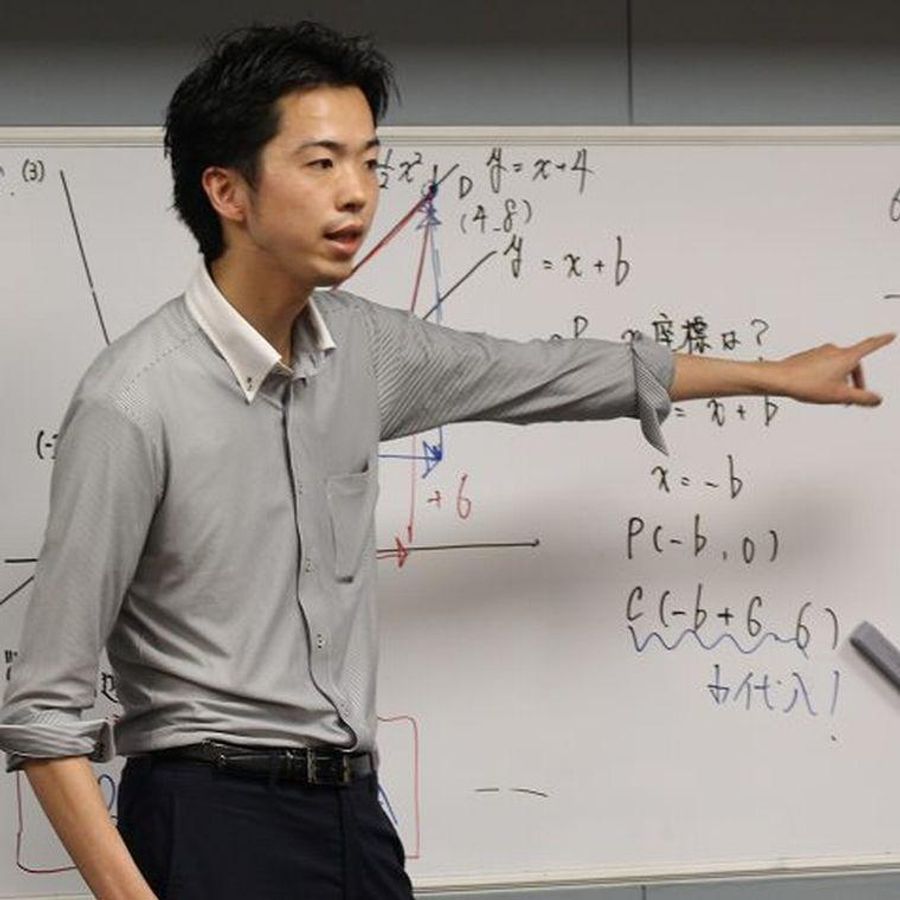 (3)
½x²
y=x+4
D
(4,8)
y=x+b
P
x座標は?
= x+b
x=-b
+6
P(-b,0)
C(-b+6,6)
代入!